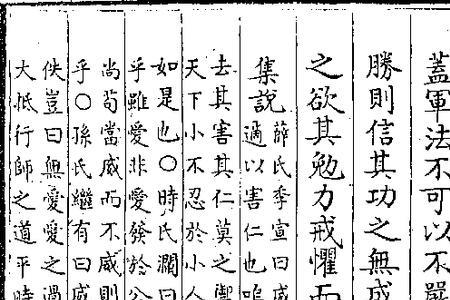 蓋軍法不可以不嚴
勝則信其功之無成
之欲其勉力戒懼而
集說薛氏季宣曰威
適以害仁也嗚
去其害其仁莫之禦
天下小不忍於小人
如是也○時氏瀾曰
乎雖愛非愛發於公
尚苟當威而不威則
乎○孫氏繼有曰威
佚豈曰無憂愛之過
大抵行師之道平時